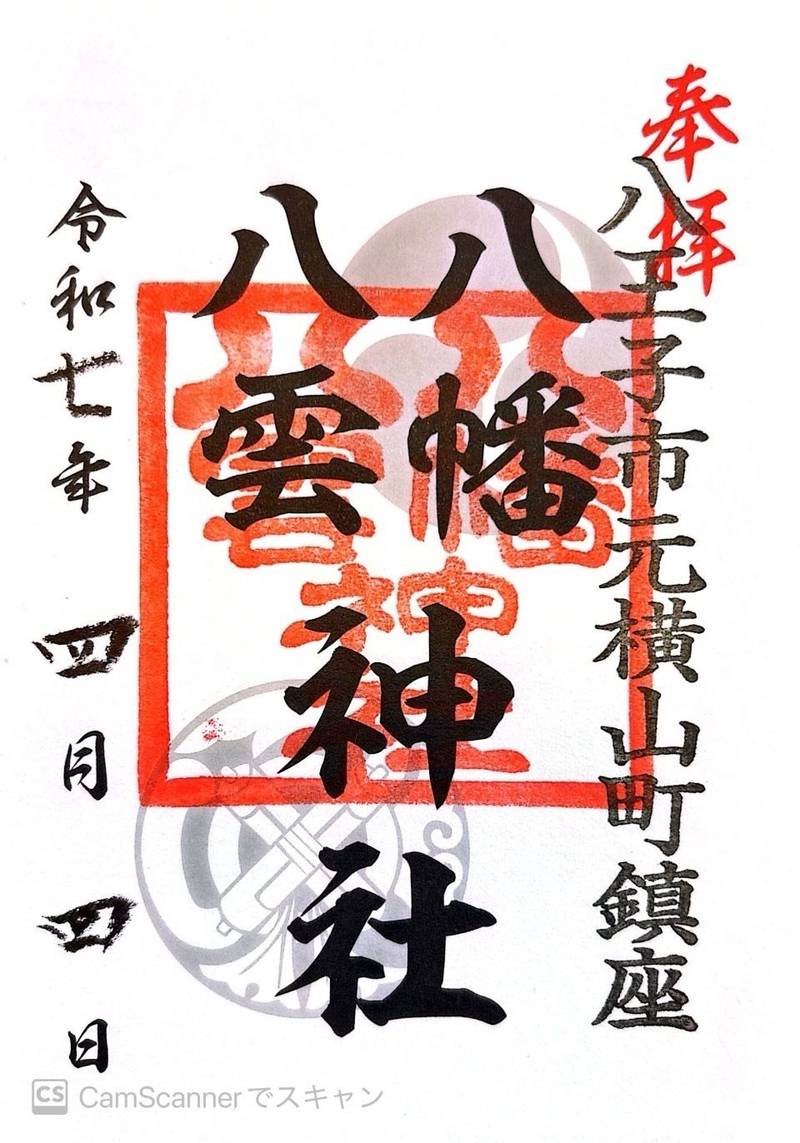 奉拝
八王子市元横山町鎮座
八幡
八雲
神社
八幡
八雲
神社
令和七年 四月 四日
CS CamScannerでスキャン